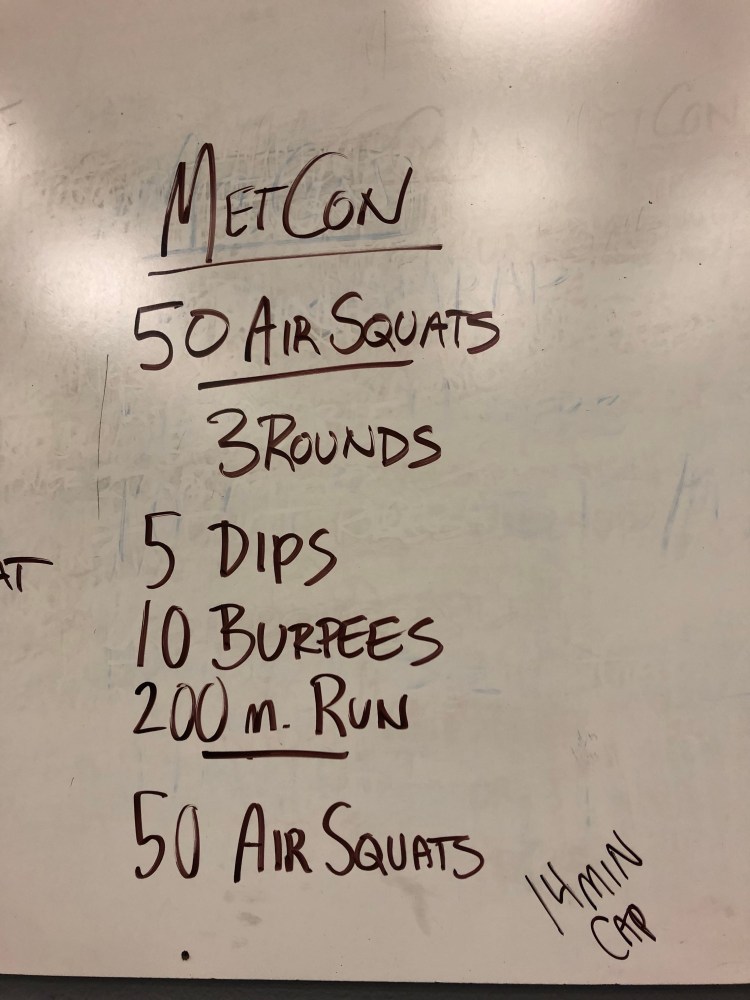 METCON
50 AIR SQUATS
3 ROUNDS
5 DIPS
10 BURPEES
200 m. RUN
50 AIR SQUATS
14 MIN
CAP